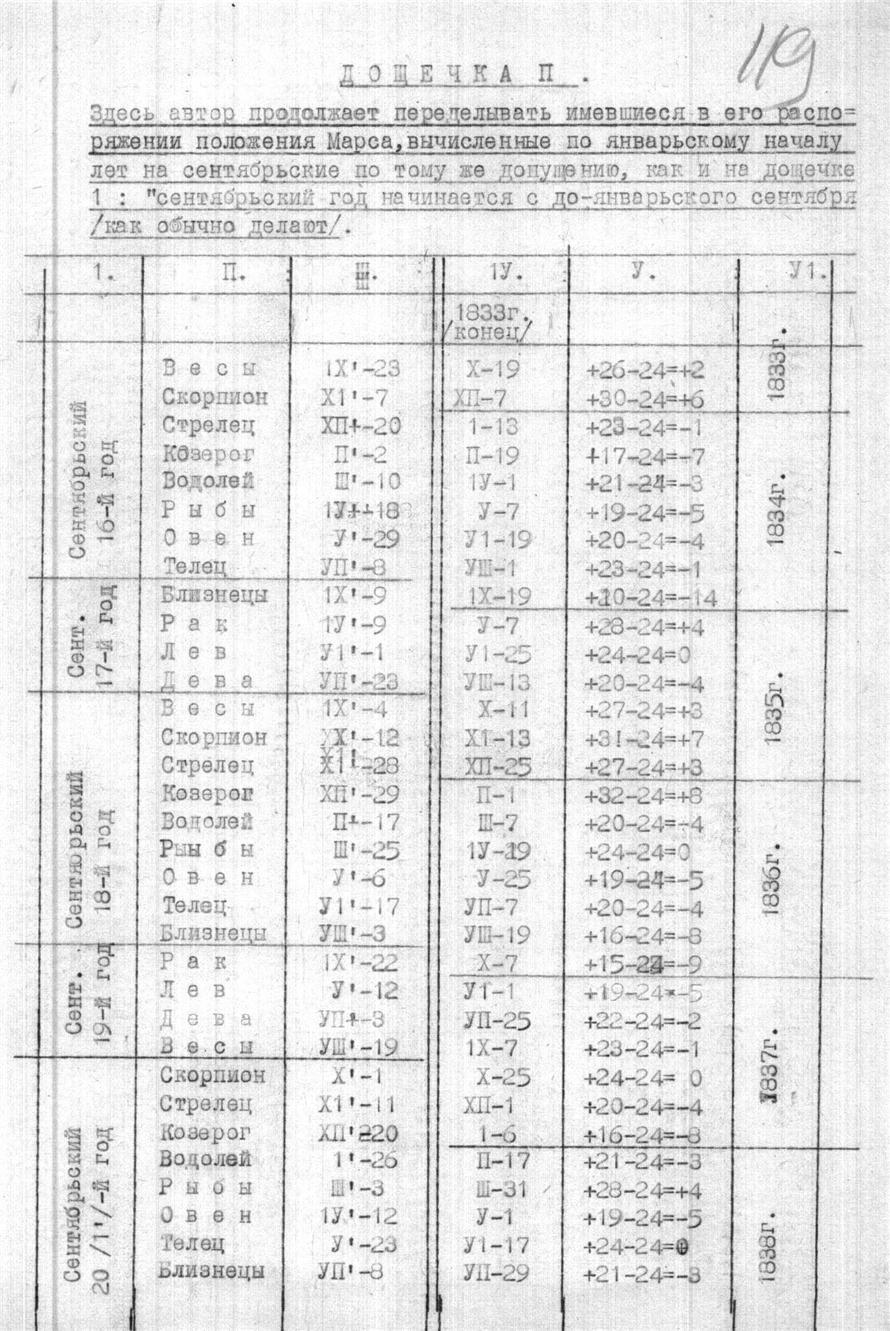 119
ДОЩЕЧКА П.
Здесь автор продолжает переделывать имевшиеся в его распо=
ряжении положения Марса,вычисленные по январьскому началу
лет на сентябрьские по тому же допущению, как и на дощечке
1 : "сентябрьский год начинается с до-январьского сентября
/как обычно делают/.
1. П. Ш. 1У. У. У1.
1833г.
/конец/
1833г.
В е с ы 1Х'-23 Х-19 +26-24=+2
Скорпион Х1'-7 ХП-7 +30-24=+6
Сентябрьский
16-й год
1834г.
Стрелец ХП'-20 1-13 +23-24=-1
Козерог П'-2 П-19 +17-24=-7
Водолей Ш'-10 1У-1 +21-24=-3
Р ы б ы 1У'-18 У-7 +19-24=-5
О в е н У'-29 У1-19 +20-24=-4
Телец УП'-8 УШ-1 +23-24=-1
Близнецы 1Х'-9 1Х-19 +10-24=-14
Сент.
17-й год
1835г.
Р а к 1У'-9 У-7 +28-24=+4
Л е в У1'-1 У1-25 +24-24=0
Д е в а УП'-23 УШ-13 +20-24=-4
В е с ы 1Х'-4 Х-11 +27-24=+3
Скорпион Х'-12 Х1-13 +31-24=+7
Стрелец Х1'-28 ХП-25 +27-24=+3
Сентябрьский
18-й год
1836г.
Козерог ХП'-29 П-1 +32-24=+8
Водолей П'-17 Ш-7 +20-24=-4
Рыы б ы Ш'-25 1У-19 +24-24=0
О в е н У'-6 У-25 +19-24=-5
Телец У1'-17 УП-7 +20-24=-4
Близнецы УШ'-3 УШ-19 +16-24=-8
Р а к 1Х'-22 Х-7 +15-24=-9
Сент.
19-й год
1837г.
Л е в У'-12 У1-1 +19-24=-5
Д е в а УП'-3 УП-25 +22-24=-2
В е с ы УШ'-19 1Х-7 +23-24=-1
Скорпион Х'-1 Х-25 +24-24= 0
Стрелец Х1'-11 ХП-1 +20-24=-4
Козерог ХП'-20 1-6 +16-24=-8
Сентябрьский
20 /1'/-й год
1838г.
Водолей 1'-26 П-17 +21-24=-3
Р ы б ы Ш'-3 Ш-31 +28-24=+4
О в е н 1У'-12 У-1 +19-24=-5
Телец У'-23 У1-17 +24-24=0
Близнецы УП'-8 УП-29 +21-24=-3